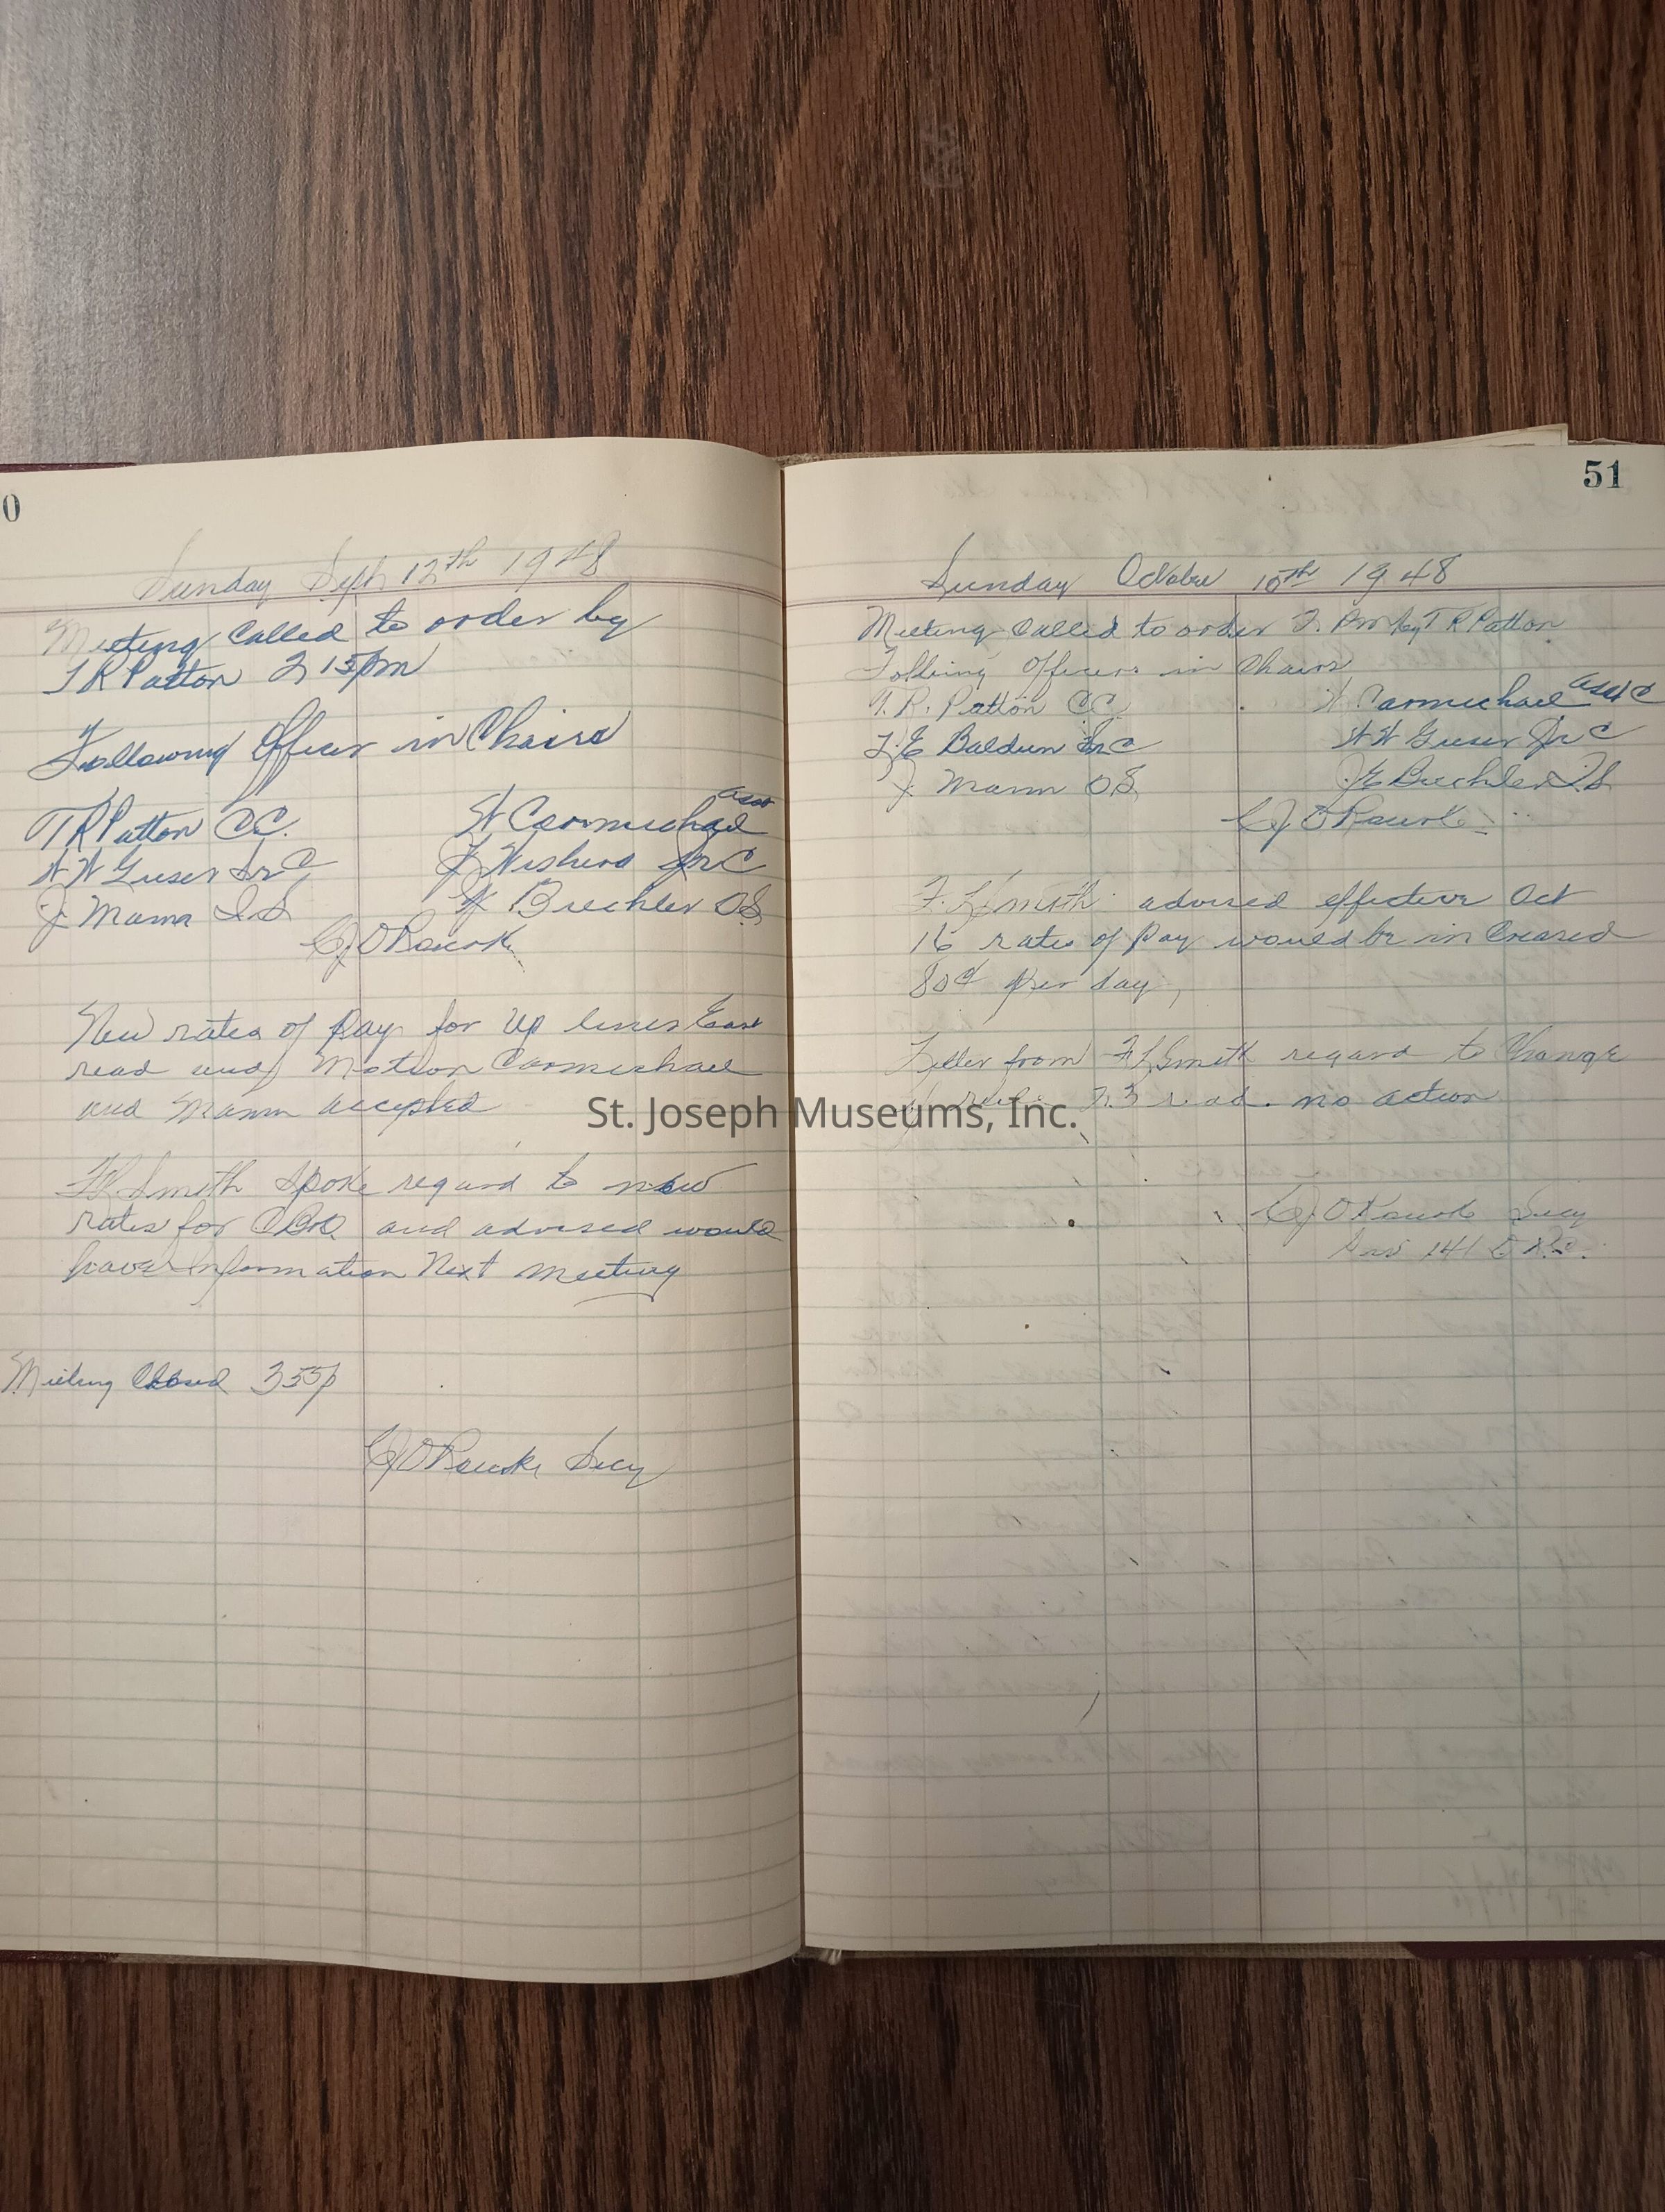 0
Sunday Sept 12th 1948
Meeting Called to order by
T R Patton 2 15 pm
Following Officer in Chairs
T R Patton CC.
H Carmichael asst
W Greser Sr C
Jr C
J. Mann I S
Buechler OS
C J O
New rates of pay for Up lines East
read and Motion Carmichael
and Mann accepted
F L Smith Spoke regard to new
rates for and advised would
have Information Next meeting
Meeting Closed 3 55 p
C J O Secy
51
Sunday October 10th 1948
Meeting Called to order 2. Pm by T R Patton
Officers in Chairs
T. R. Patton CC.
H Carmichael asst C
E Baldwin Sr C
W Greser Jr C
J. Mann OS
J E Buechler I S
C J O
F. L. Smith advised effective Oct
16 rates of Pay would be in Creased
80¢ per day,
Letter from F L Smith regard to Change
read. no action
St. Joseph Museums, Inc.
C J O Secy
141